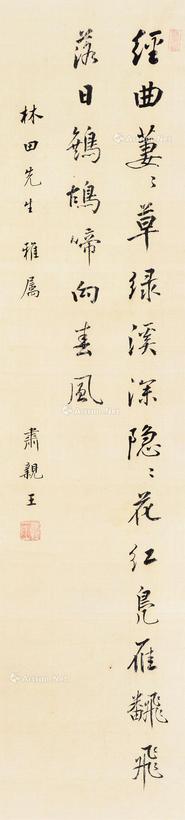 經曲萋〻草緑溪深隱〻花紅鳧雁飜飛
落日鷓鴣啼向春風
林田先生雅屬 肅親王